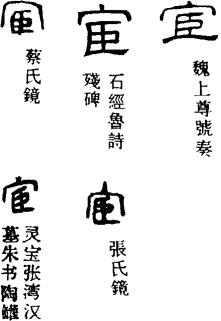 宦
魏上尊號奏
宦
石經魯詩
殘碑
宦
蔡氏鏡
宦
張氏鏡
宦
灵宝张湾汉
墓朱书陶罐